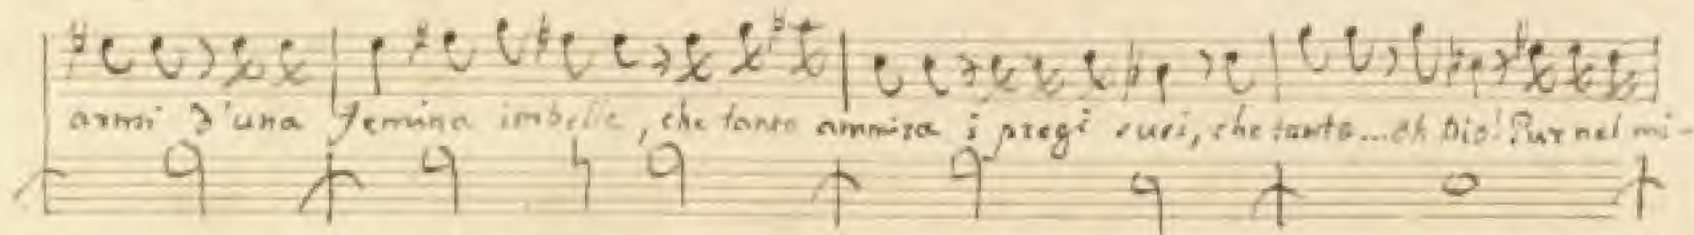 armi d'una femina imbelle, che tanto ammira i pregi suoi, che tanto... oh Dio! Pur nel mi-